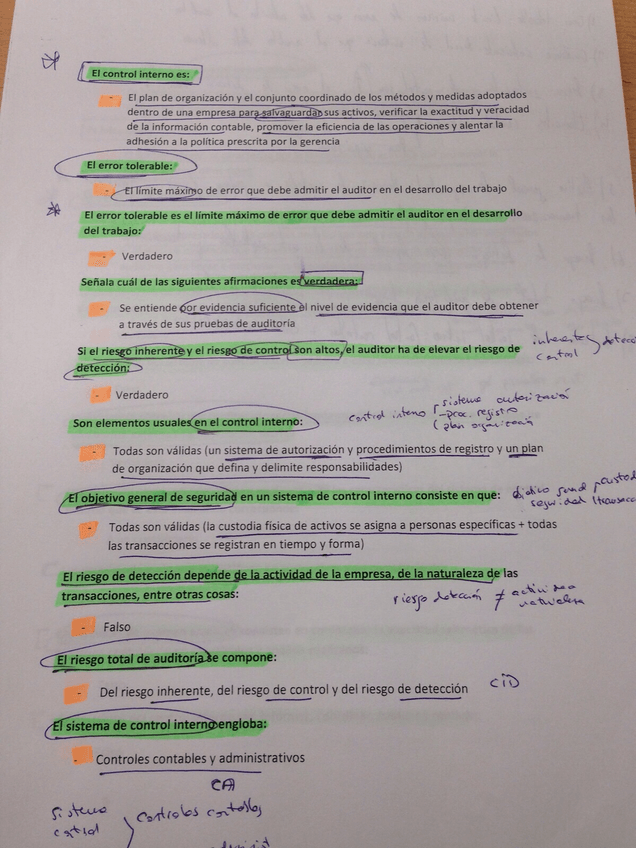 El control interno es:
- El plan de organización y el conjunto coordinado de los métodos y medidas adoptados
dentro de una empresa para salvaguardar sus activos, verificar la exactitud y veracidad
de la información contable, promover la eficiencia de las operaciones y alentar la
adhesión a la política prescrita por la gerencia
El error tolerable:
- El límite máximo de error que debe admitir el auditor en el desarrollo del trabajo
El error tolerable es el límite máximo de error que debe admitir el auditor en el desarrollo
del trabajo:
- Verdadero
Señala cuál de las siguientes afirmaciones es verdadera:
- Se entiende por evidencia suficiente el nivel de evidencia que el auditor debe obtener
a través de sus pruebas de auditoría
Si el riesgo inherente y el riesgo de control son altos, el auditor ha de elevar el riesgo de
detección:
inherentes
control
- Verdadero
Son elementos usuales en el control interno:
control interno
sistema autorización
- proc. registro
plan organización
- Todas son válidas (un sistema de autorización y procedimientos de registro y un plan
de organización que defina y delimite responsabilidades)
El objetivo general de seguridad en un sistema de control interno consiste en que:
seguridad
- Todas son válidas (la custodia física de activos se asigna a personas específicas + todas
las transacciones se registran en tiempo y forma)
El riesgo de detección depende de la actividad de la empresa, de la naturaleza de las
transacciones, entre otras cosas:
riesgo detección ≠ actividad
naturaleza
- Falso
El riesgo total de auditoría se compone:
- Del riesgo inherente, del riesgo de control y del riesgo de detección
CiD
El sistema de control interno engloba:
- Controles contables y administrativos
CA
Sistema
control
Controles contables